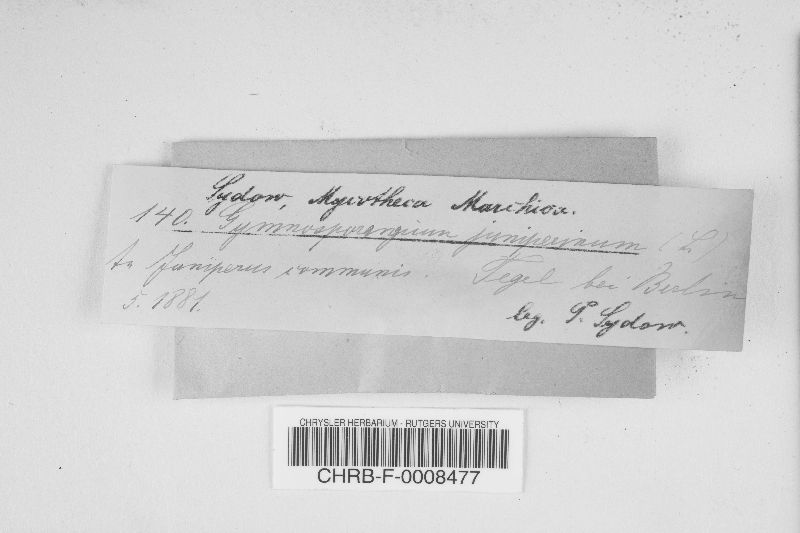 Sydow, Mycotheca Marchica.
140. Gymnosporangium juniperinum (L)
In Juniperus communis. Tegel bei Berlin
5. 1881.
leg. P. Sydow.
CHRYSLER HERBARIUM - RUTGERS UNIVERSITY
CHRB-F-0008477